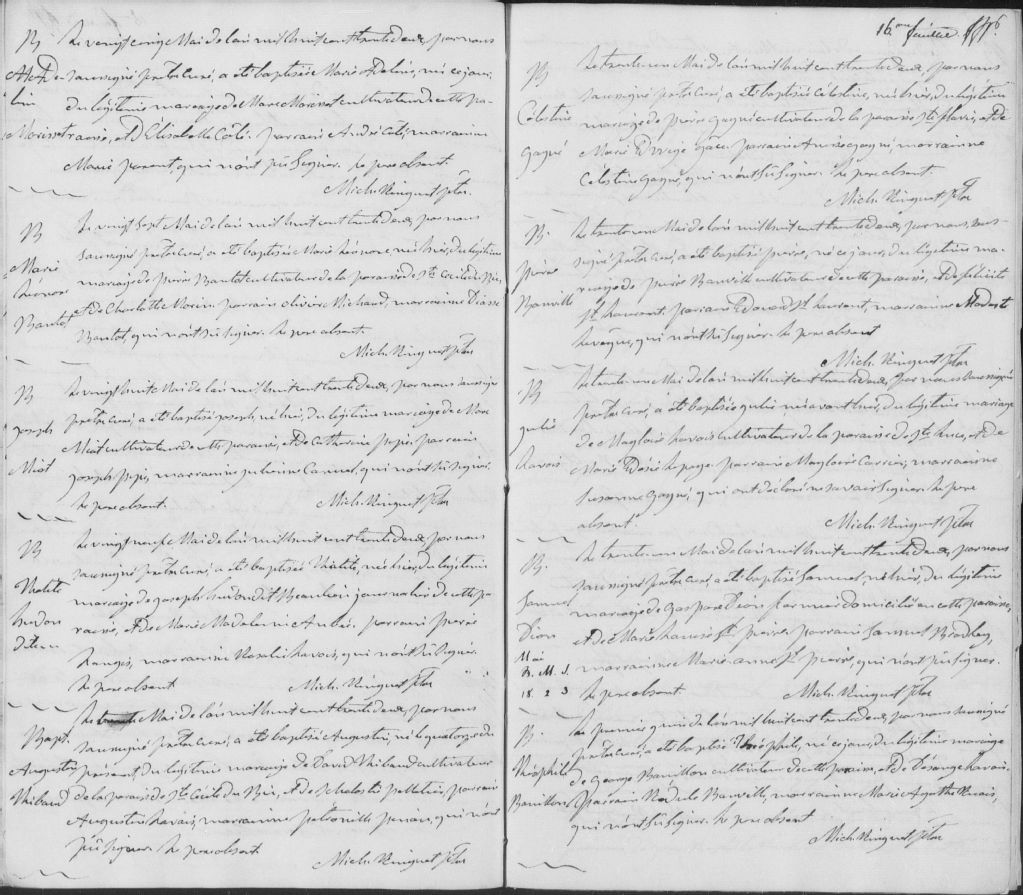 B
Adeline
Morisset
Le vingt cinq Mai de l'an mil huit cent trente deux, par nous
soussigné prêtre curé, a été baptisée Marie Adeline, née ce jour,
du légitime mariage de Marc Morisset cultivateur de cette pa-
roisse, et d'Elisabeth Coté. parrain André Coté, marraine
Marie parent, qui n'ont pû signer. Le pere absent.
Mich. Ringuet ptre
B
Marie
Léonore
Banlot
Le vingt sept Mai de l'an mil huit cent trente deux, par nous
soussigné prêtre curé, a été baptisée Marie Léonore, née hier, du légitime
mariage de pierre Banlot cultivateur de la paroisse de Ste Cécile du Bic,
et de Charlotte Morin. parrain olivier Michaud, marraine
Banlot, qui n'ont sû signer. Le pere absent.
Mich. Ringuet ptre
B
joseph
Miot
Le vingt huit Mai de l'an mil huit cent trente deux, par nous soussigné
prêtre curé, a été baptisé joseph, né hier, du légitime mariage de Marc
Miot cultivateur de cette paroisse, et de Catherine pepin. parrain
joseph pepin, marraine julienne Canuel, qui n'ont sû signer.
Le pere absent. Mich. Ringuet ptre
B
Violite
hudon
dit Beau
Le vingt neuf Mai de l'an mil huit cent trente deux, par nous
soussigné prêtre curé, a été baptisée Violite, née hier, du légitime
mariage de joseph hudon dit Beaulieu journalier de cette pa-
roisse, et de Marie Madeleine Aubé. parrain pierre
Langis, marraine Rosalie Lavoie, qui n'ont sû signer.
Le pere absent Mich. Ringuet ptre
Bapt.
Augustin
Thibaud
Le trente Mai de l'an mil huit cent trente deux, par nous
soussigné prêtre curé, a été baptisé Augustin, né le quatorze du
présent, du légitime mariage de David Thibaud cultivateur
de la paroisse de Ste Cécile du Bic, et de Scholastie pelletier. parrain
Augustin Lavoie, marraine petronille pineau, qui n'ont
pû signer. Le pere absent.
Mich. Ringuet ptre
16.me feuillet.
B
Célestine
Gagné
Le trente un Mai de l'an mil huit cent trente deux, par nous
soussigné prêtre curé, a été baptisée Célestine, née hier, du légitime
mariage de pierre gagné cultivateur de la paroisse Ste flavie, et de
Marie Edwige gace. parrain André gagné, marraine
Célestine gagné, qui n'ont sû signer. Le pere absent.
Mich. Ringuet ptre
B.
pierre
Banville
Le trente un Mai de l'an mil huit cent trente deux, par nous, sous-
signé prêtre curé, a été baptisé pierre, né ce jour, du légitime ma-
riage de pierre Banville cultivateur de cette paroisse, et de félicité
St. Laurent. parrain Edouard St. Laurent, marraine Modeste
Levêque, qui n'ont sû signer. Le pere absent
Mich. Ringuet ptre
B
julie
Lavoie
Le trente un Mai de l'an mil huit cent trente deux, par nous soussigné
prêtre curé, a été baptisée julie née avant hier, du légitime mariage
de Magloire Lavoie cultivateur de la paroisse de Ste Luce, et de
Marie Désire Lepage. parrain Magloire Carrier, marraine
Susanne gagné, qui ont déclaré ne savoir signer. Le pere
absent. Mich. Ringuet ptre
B.
Samuel
Dion
Mai
B. M. S.
18 2 3
Le trente un Mai de l'an mil huit cent trente deux, par nous
soussigné prêtre curé, a été baptisé Samuel, né hier, du légitime
mariage de gaspard Dion fermier domicilié en cette paroisse,
et de Marie Louise St. pierre. parrain Samuel Bradley,
marraine Marie-anne St. pierre, qui n'ont pû signer.
Le pere absent Mich. Ringuet ptre
B.
Théophile
Banvillon
Le premier juin de l'an mil huit cent trente deux, par nous soussigné
prêtre curé, a été baptisé Théophile, né ce jour, du légitime mariage
de George Banvillon cultivateur de cette paroisse, et de Désange Lavoie.
parrain Banville, marraine Marie Agathe Ruais,
qui n'ont sû signer. Le pere absent
Mich. Ringuet ptre